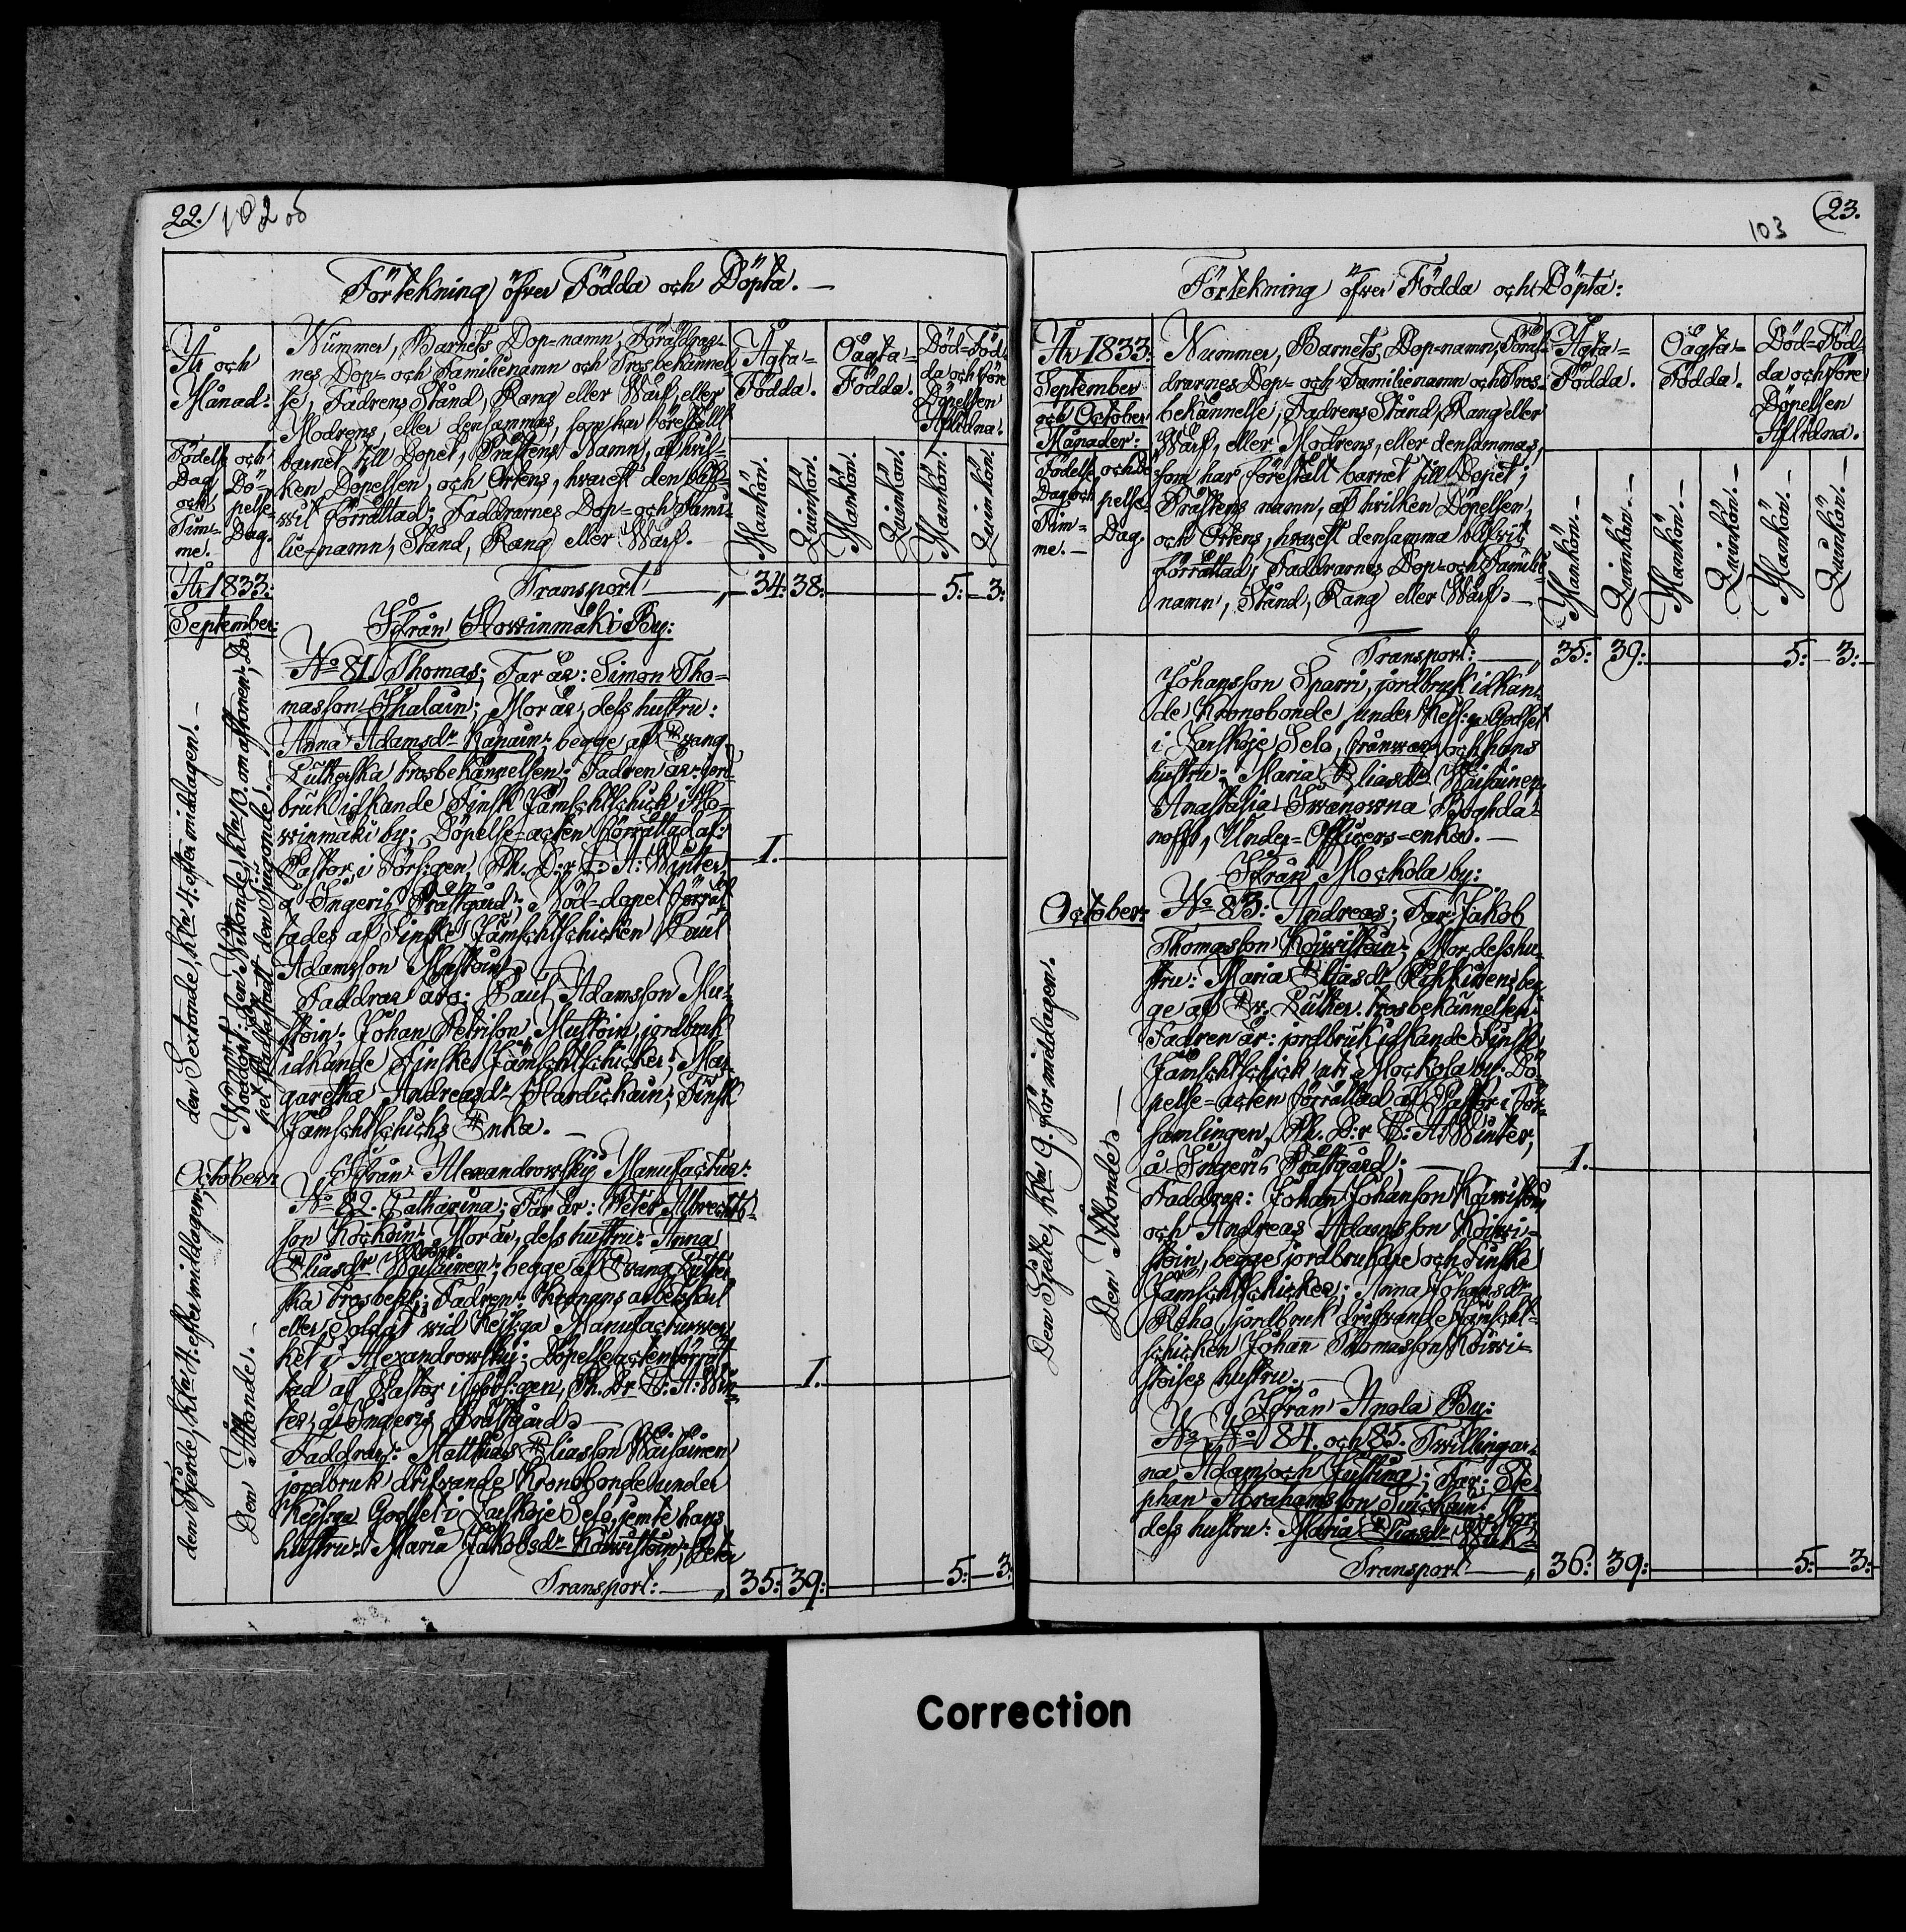 22.
102
Förtekning öfver Födda och Döpta. —
År och
Månad:
Nummer, Barnets Dop=namn, Föräldrar-
nes Dop= och Familienamn och Trosbekännel
se, Fadrens Stånd, Rang eller Värf, eller
Modrens, eller densammas, som har föreställt
barnet till Dopet, Prästens Namn, af hvil=
ken Döpelsen, och Ortens, hvarest den blif=
wit förrättad; Faddrarnes Dop= och Fami=
lie=namn, Stånd, Rang eller Wärf.
Ägta=
Födda.
Oägta=
Födda.
Död=Föd=
da och före
Döpelsen
Aflidna.
Födelse
Dag
och
Tim=
me.
och
Dö=
pelse
Dag.
Mankön.
Qvinkön.
Mankön.
Qvinkön.
Mankön.
Qvinkön.
År 1833:
Transport — 34: 38: 5: 3:
September:
Ifrån Howinmäki By:
No 81. Thomas; Far är: Simon Tho=
masson Ihalain; Mor är, dess hustru:
Anna Adamsdr Kapain; begge af Evang.
Lutherska trosbekännelsen; Fadren är: jord
bruk idkande Finsk Jämschtschick i Ho=
winmäki by; Döpelse=acten förrättad af:
Pastor i Förs:gen, Ph. D:r E: A: Winter,
å Ingeris Prästgård; Nöd=dopet förrät=
tades af Finske Jämschtschicken Paul
Adamsson Mustoin;
1.
Faddrar äro: Paul Adamsson Mu=
stoin; Johan Petrison Mustoin, jordbruk
idkande Finske Jämschtschicker; Mar=
garetha Andreasdr Hardickain; Finsk
Jämschtschicks Enka. —
den Sextonde, Kln 4. efter middagen. —
Nöddöpt: den Nittonde, Kln 10. om aftonen; Do=
pet stadfästadt den Tjugonde. —
October:
Ifrån Alexandrowskij Manufactur:
No 82. Catharina; Far är: Peter Albrechts=
son Kockoin; Mor är, dess hustru: Anna
Eliasdr Waisainen; begge af Evang. Luther
ska trosbek:; Fadren: Kronans arbetskarl
eller Soldat wid Kejs:ga Manufacturwer
ket i Alexandrowskij; Döpelseacten förrät
tad af Pastor i Förs:gen, Ph. Dr E: A: Win=
ter, å Ingeris Prästgård. —
1.
Faddrar: Matthias Eliasson Waisainen
jordbruk drifwande Kronobonde under
Kejs:ga Godset i Zarskoje Selo, jemte hans
hustru: Maria Jakobsdr Koiwistoin; Peter
den Fjerde, Kln 4. eftermiddagen;
Den Åttonde. —
Transport: — 35: 39: 5: 3:
23.
103
Förtekning öfver Födda och Döpta:
År 1833:
September
och October
Månader:
Nummer, Barnets Dop=namn, Föräl=
drarnes Dop= och Familienamn och Tros=
bekännelse, Fadrens Stånd, Rang eller
Wärf, eller Modrens, eller densammas,
som har föreställt barnet till Dopet;
Prästens namn, af hvilken Döpelsen,
och Ortens, hvarest densamma blifwit
förrättad; Faddrarnes Dop= och Familie=
namn, Stånd, Rang eller Wärf. —
Ägta=
Födda.
Oägta=
Födda.
Död=Föd=
da och före
Döpelsen
Aflidna.
Födelse
Dag och
Tim=
me. —
och Dö
pelse
Dag.
Mankön. —
Qvinkön. —
Mankön. —
Qvinkön. —
Mankön. —
Qvinkön. —
Transport: — 35: 39: 5: 3:
Johansson Sparri, jordbruk idkan=
de Kronobonde under Kejs:ga Godset
i Zarskoje Selo, och hans
hustru: Maria Eliasdr Waisainen;
Anastasia Iwanowna Boghda=
noff, Under=Officers=enka. —
Ifrån Mockola by:
October:
No 83: Andreas; Far: Jakob
Thomasson Koiwistoin; Mor dess hu=
stru: Maria Eliasdr beg=
ge af Ev. Luther. trosbekännelsen;
Fadren är: jordbruk idkande Finsk
Jämschtschick uti Mockola by; Dö=
pelse=acten förrättad af Pastor i För=
samlingen, Ph. D:r E: A: Winter,
å Ingeris Prästgård; —
1.
Faddrar: Johan Johansson Koiwistoin
och Andreas Adamsson Koiwi=
stoin, begge jordbrukare och Finske
Jämschtschicker; Anna Johansdr
Reho, jordbruk drifwande Jämscht=
schicken Johan Thomasson Koiwi=
stoises hustru. —
Den Sjette, Kln 9. för middagen.
Den Åttonde. —
Ifrån Anola By:
No No 84. och 85. Twillingar=
na Adam och Justina; Far: Ste
phan Abrahamsson Mor
dess hustru: Maria Eliasdr Wiik=
Transport — 36: 39: 5: 3:
Correction